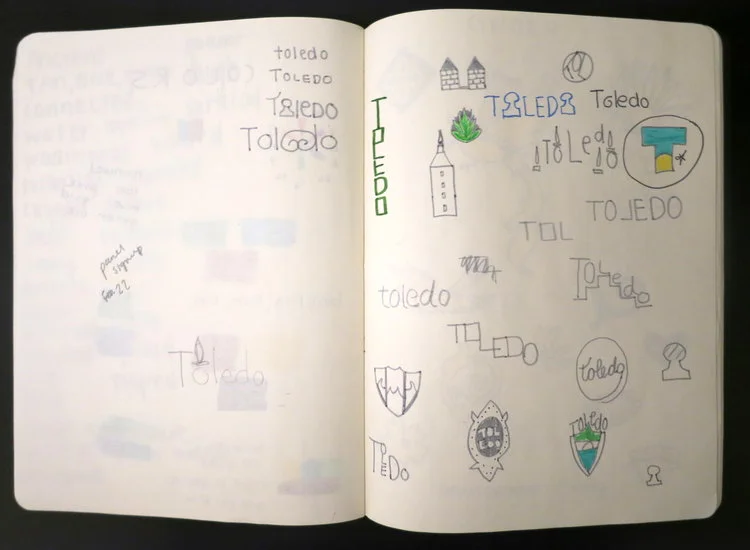 toledo
TOLEDO
Toledo
Toledo
panel
signup
Toledo
TOLEDO
TOLEDO
Toledo
Toledo
T
TOLEDO
TOL
toledo
Toledo
TOLEDO
Toledo
TOLEDO
TOL
EDO
Toledo